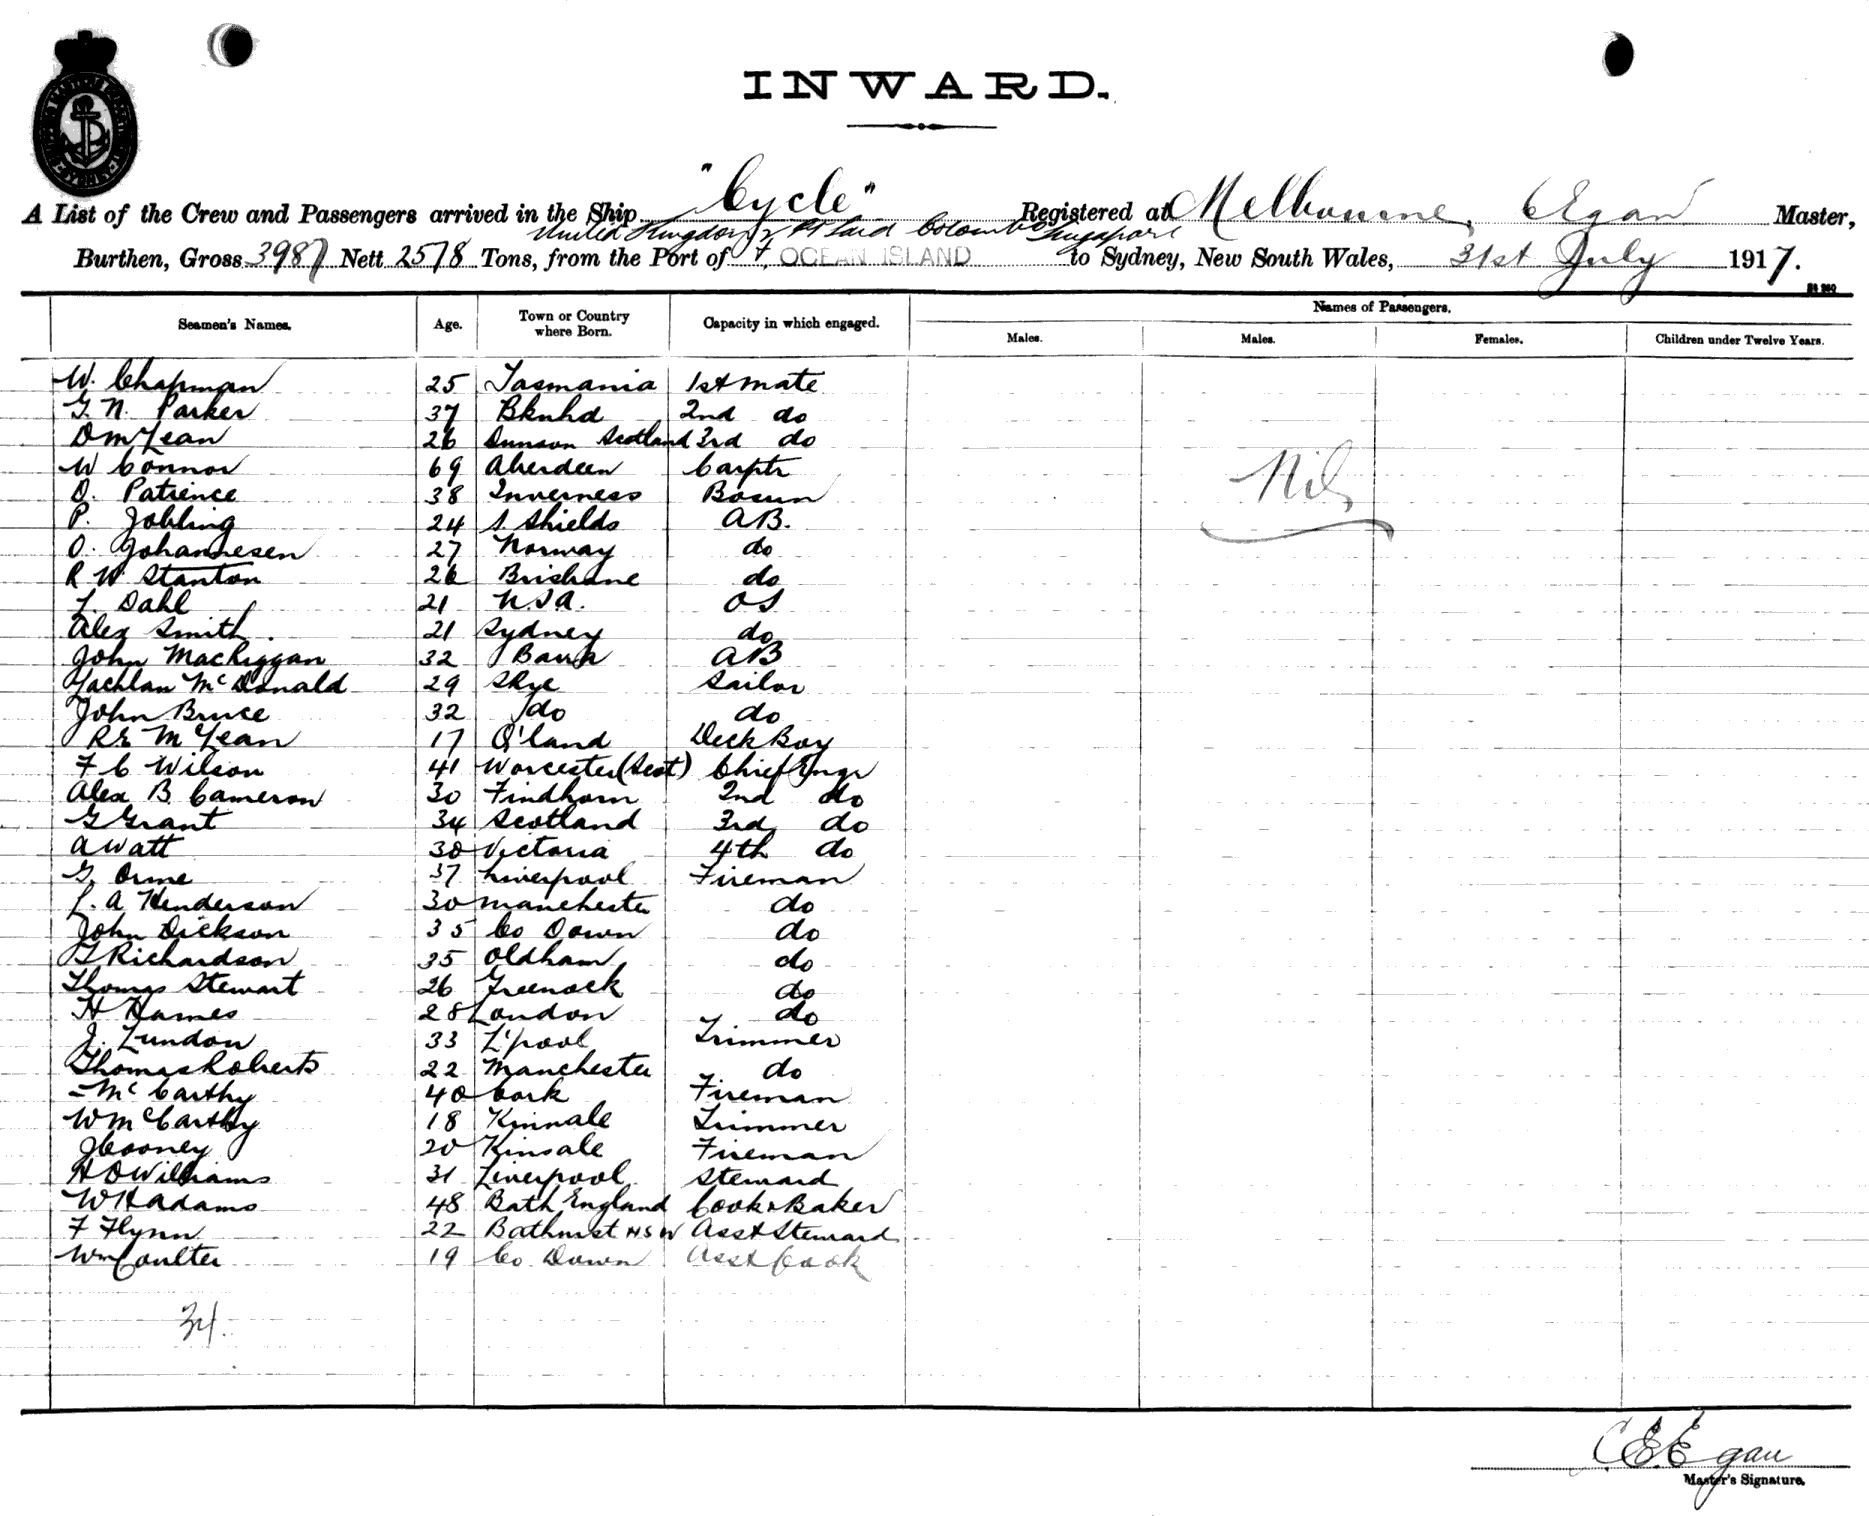 INWARD.
"Cycle"
A List of the Crew and Passengers arrived in the Ship Registered at Melbourne, C Egan Master,
United Kingdom Pt Said Colombo Singapore
Burthen, Gross 3987 Nett 2578 Tons, from the Port of OCEAN ISLAND to Sydney, New South Wales, 31st July 1917.
Names of Passengers.
Seamen's Names. Age. Town or Country where Born. Capacity in which engaged. Males. Males. Females. Children under Twelve Years.
W. Chapman 25 Tasmania 1st mate
G. N. Parker 37 Bknhd 2nd do
D McLean 26 Dunoon Scotland 3rd do
W Connor 69 Aberdeen Carptr
Nil
D. Patience 38 Inverness Bosun
P. Jobling 24 S Shields AB.
O. Johannesen 27 Norway do
R W Stanton 26 Brisbane do
L. Dahl 21 USA. OS
Alex Smith. 21 Sydney do
John MacRiggan 32 AB
Lachlan McDonald 29 Skye Sailor
John Bruce 32 do do
R E McLean 17 Q'land Deck Boy
F C Wilson 41 Worcester Chief Engr
Alex B Cameron 30 Findhorn 2nd do
G Grant 34 Scotland 3rd do
A Watt 30 Victoria 4th do
G. Orme 37 Liverpool Fireman
L. A Henderson 30 Manchester do
John Dickson 35 Co Down do
G Richardson 35 Oldham do
Thomas Stewart 26 Greenock do
H Hames 28 London do
J. Lundon 33 L'pool Trimmer
Thomas Roberts 22 Manchester do
- McCarthy 40 Cork Fireman
W McCarthy 18 Kinnale Trimmer
J Cooney 20 Kinsale Fireman
H O Williams 31 Liverpool Steward
W H Adams 48 Bath England Cook & Baker
F Flynn 22 Bathurst NSW Asst Steward
Wm Coulter 19 Co Down Asst Cook
34.
C. E. Egan
Master's Signature.